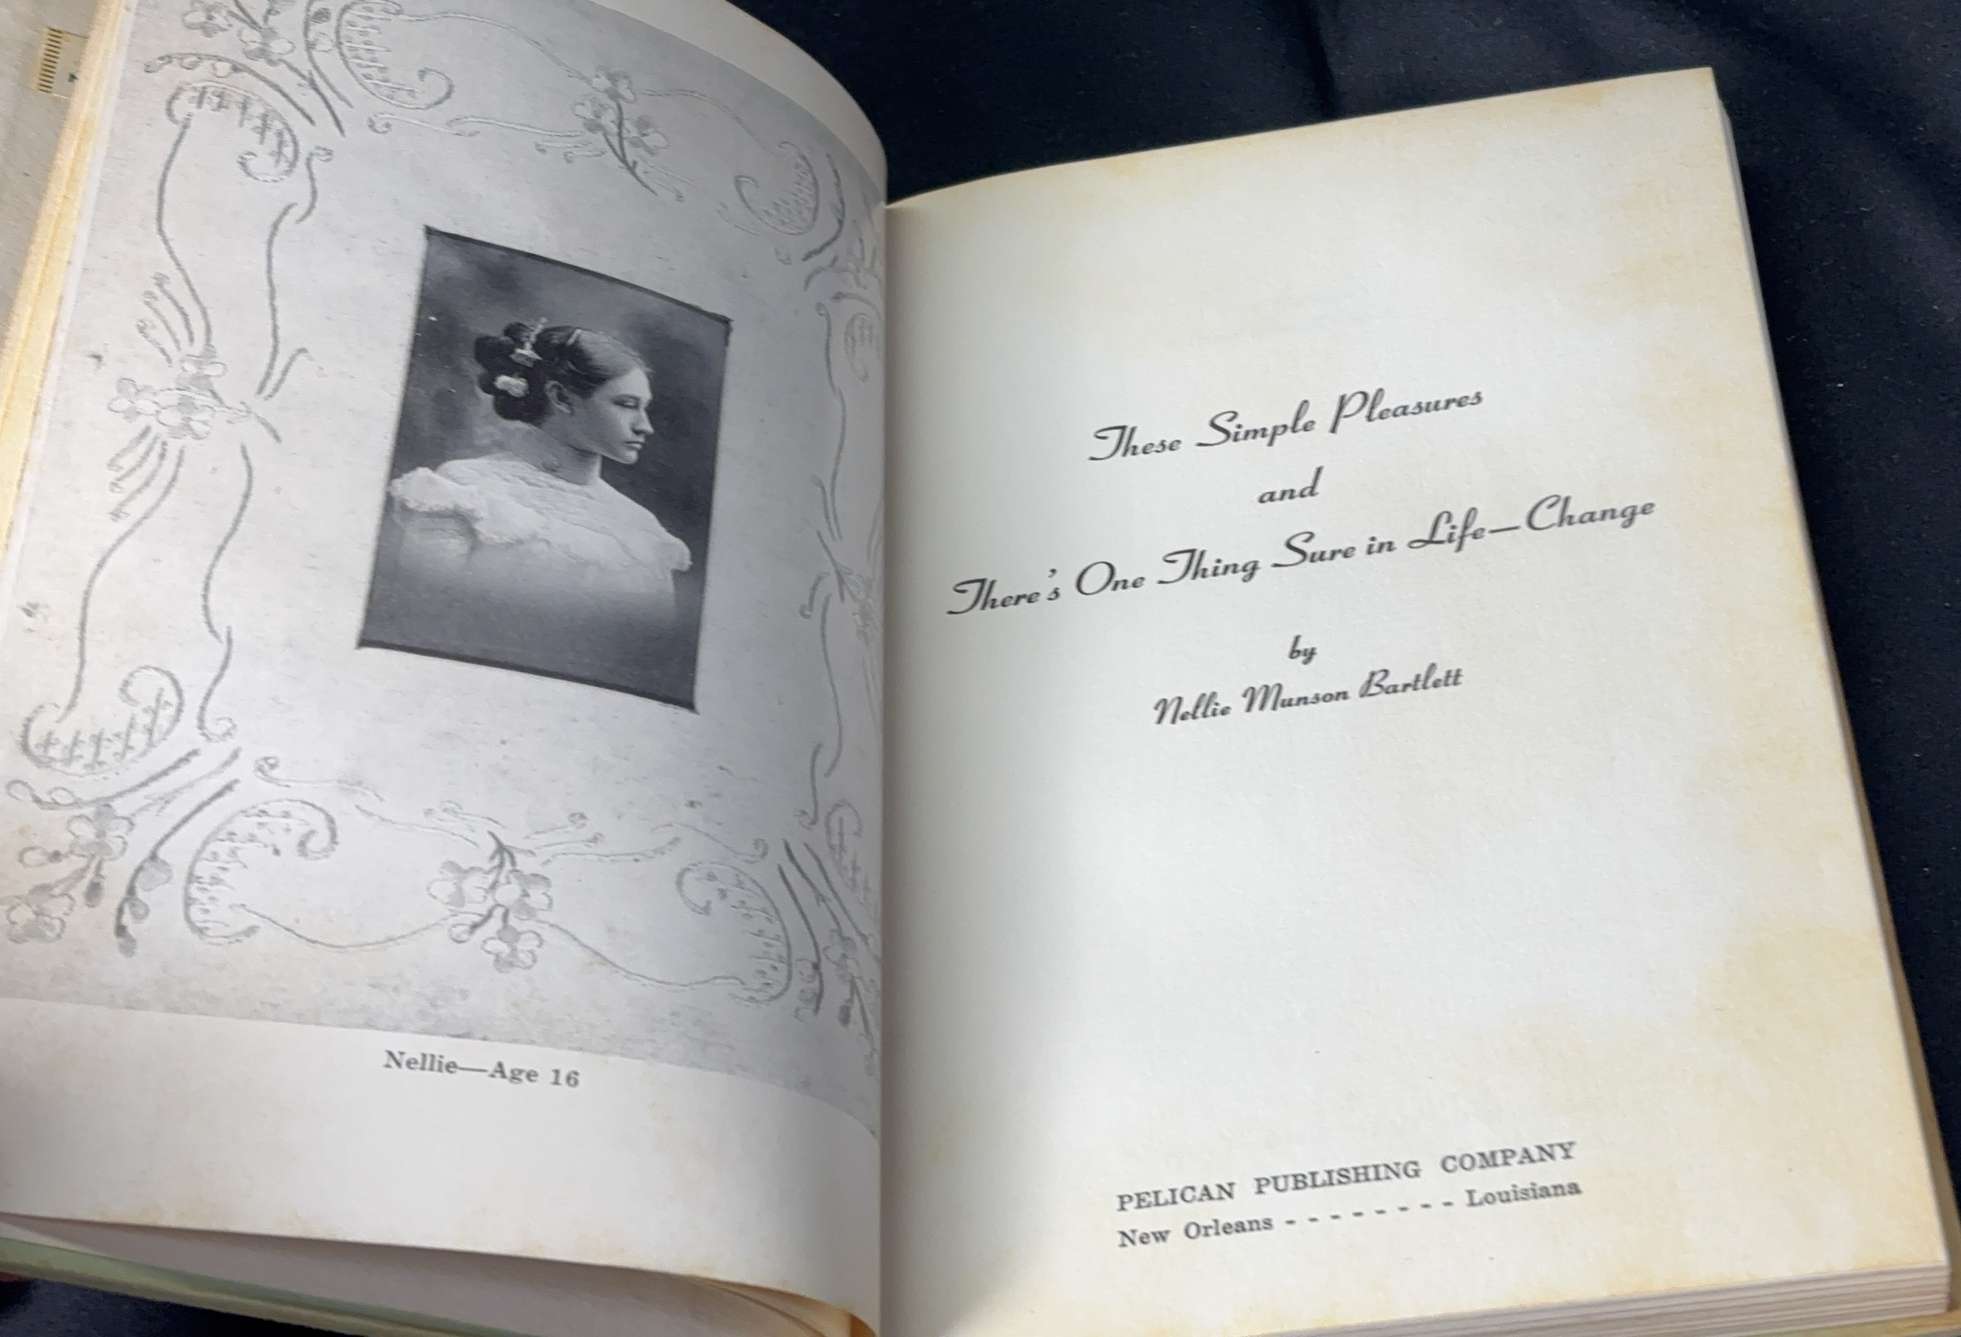 Nellie—Age 16
These Simple Pleasures
and
There's One Thing Sure in Life—Change
by
Nellie Munson Bartlett
PELICAN PUBLISHING COMPANY
New Orleans - - - - - - - - Louisiana